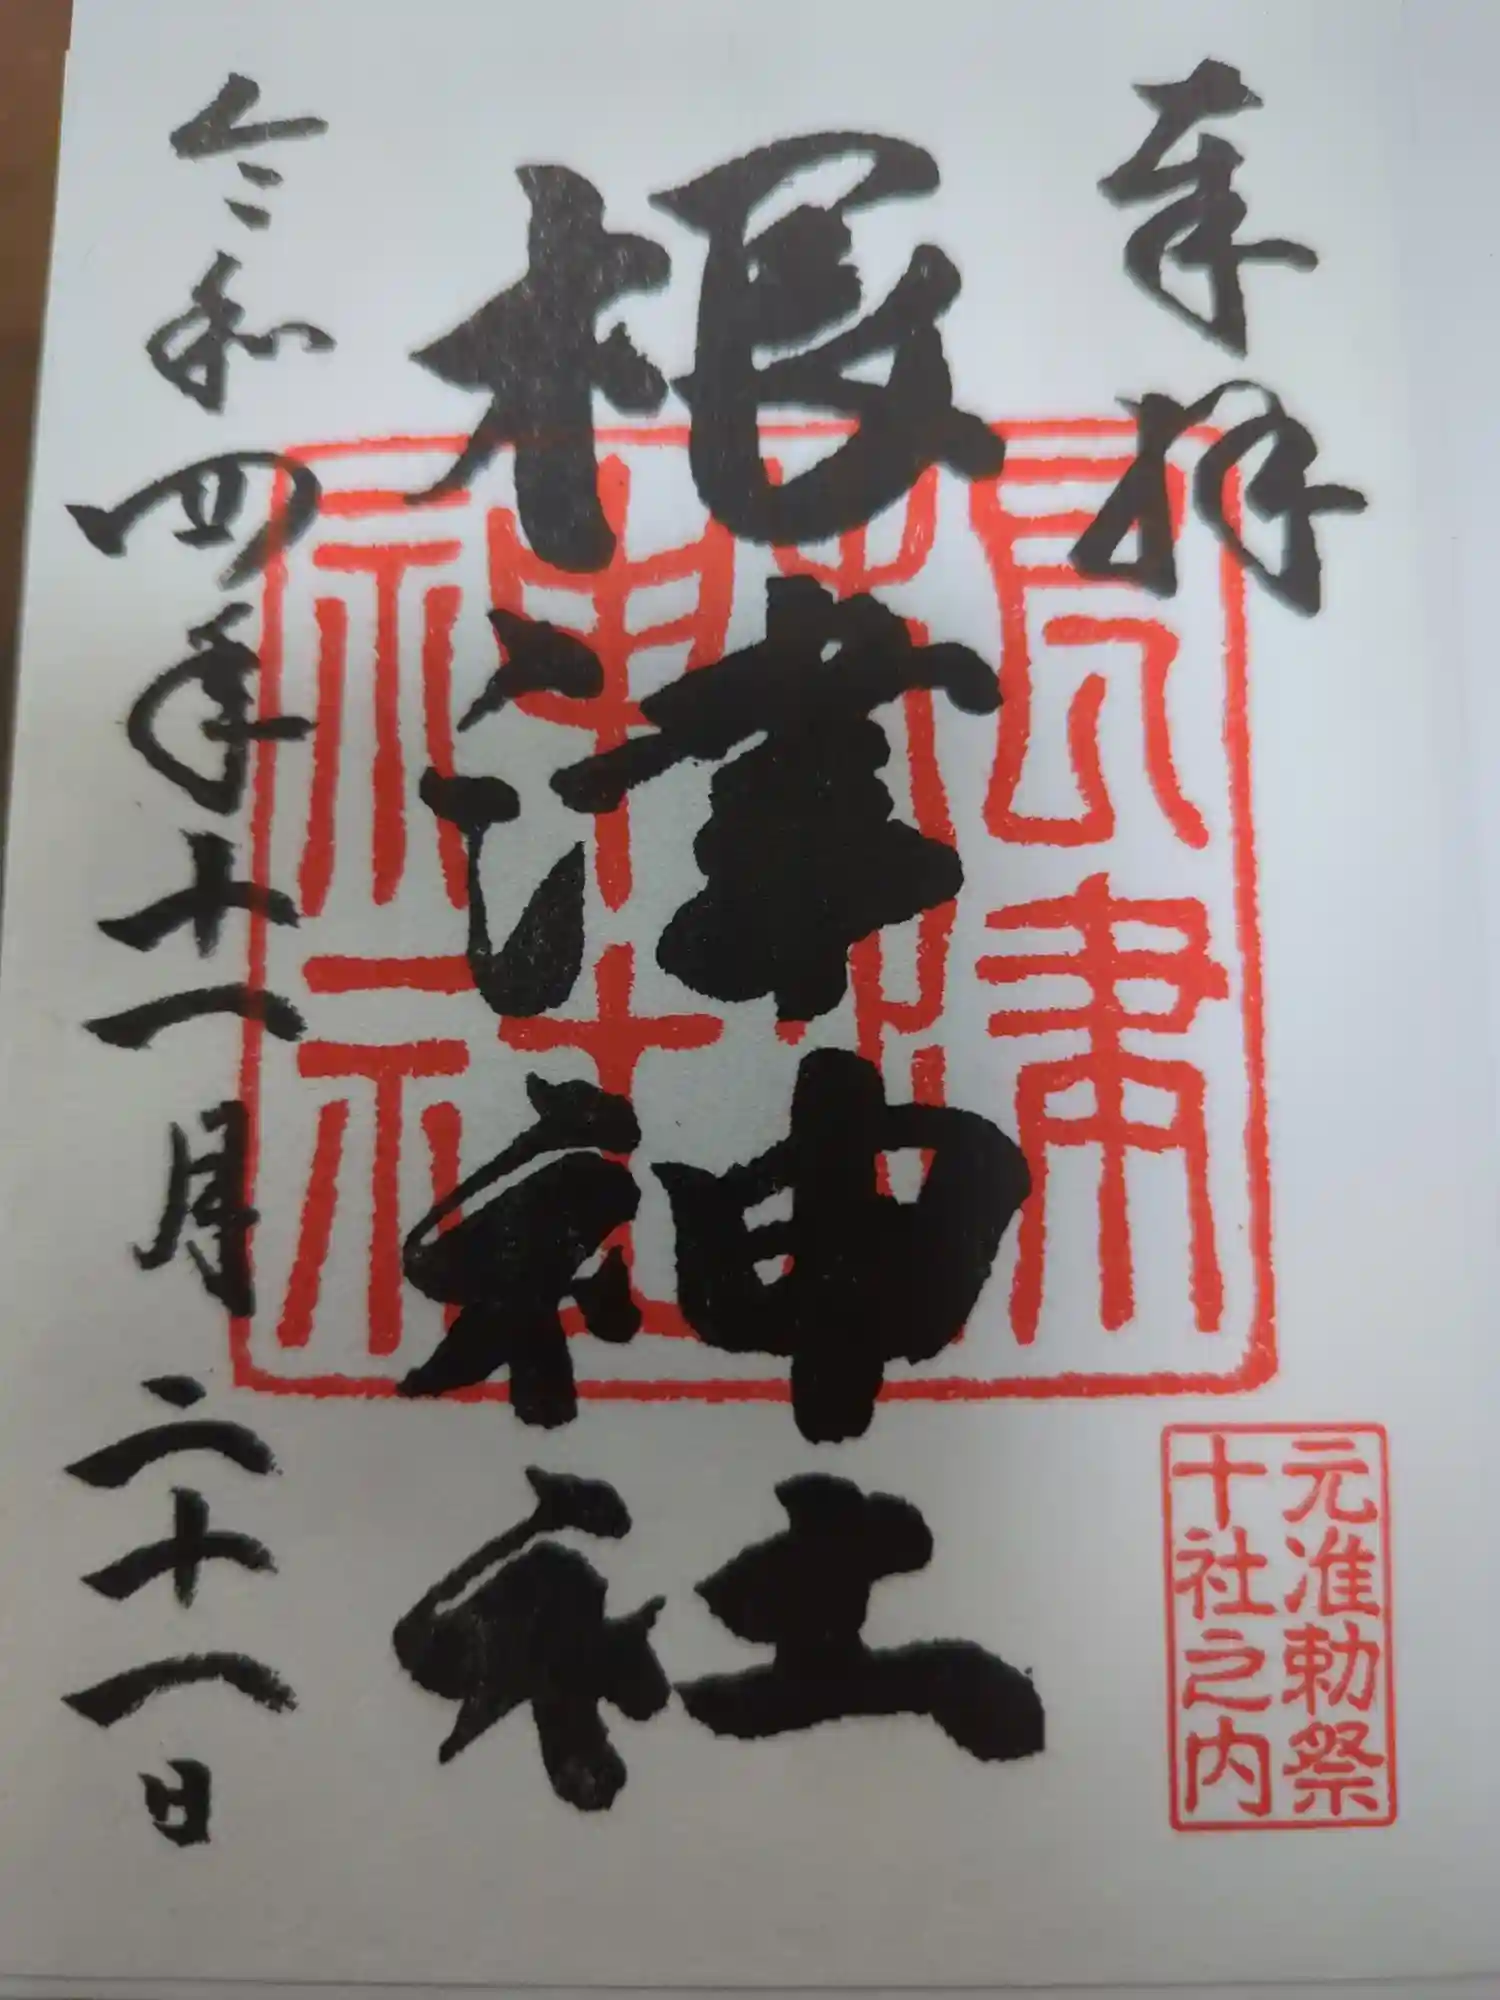 奉拝
根津神社
根津
神社
令和四年十一月二十一日
元准勅祭
十社之内